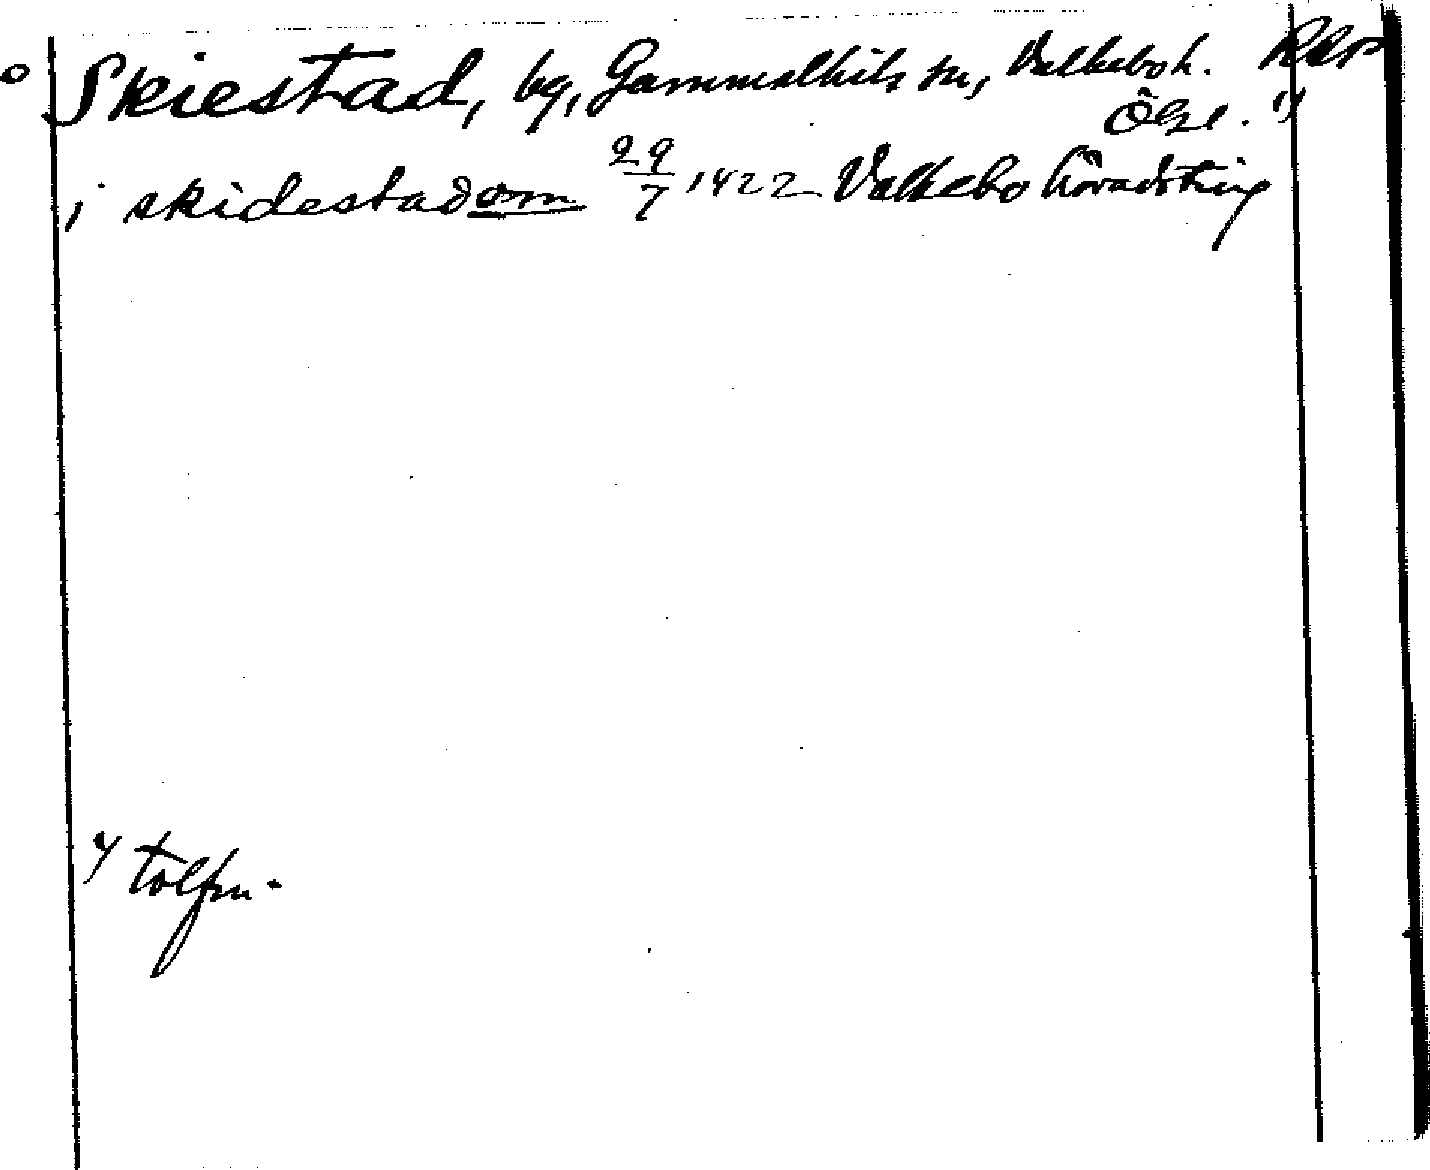 Skiestad, by, Gammalkils sn, Valkebo h.
Ögl.
i skidestadom 29/7 1422 Valkebo häradsting
tolfm.